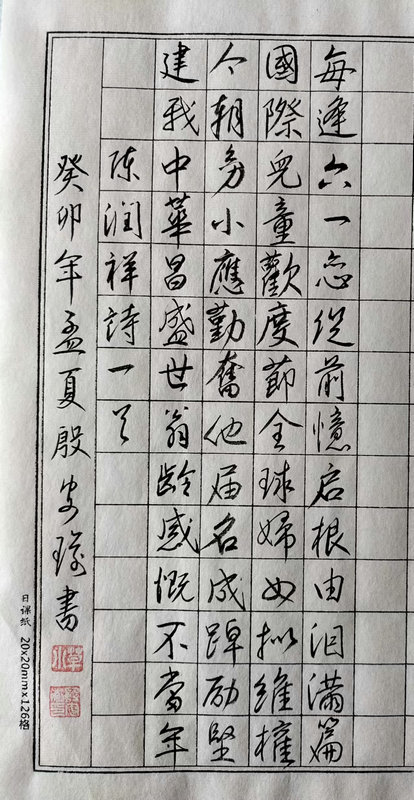 每逢六一恋從前憶启根由泪滿篇
國際兒童歡度節全球婦女拟維權
今朝幼小應勤奮他届名成踔励堅
建我中華昌盛世翁齡感慨不當年
陈润祥詩一首
癸卯年孟夏殷書
日课纸 20x20mmx126格